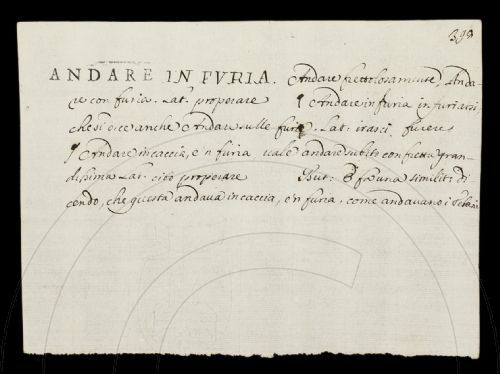 399
ANDARE IN FVRIA. Andare frettolosamente, Anda-
re con furia. Lat. properare ¶ Andare in furia infuriarsi,
che si dice anche Andare sulle furie. Lat. irasci, furere
¶ Andare in caccia, e 'n furia vale andare subito con fretta gran-
dissima Lat. cito properare But: E fa una similit: di-
cendo, che questa andava in caccia, e 'n furia, come andavano i Tebani